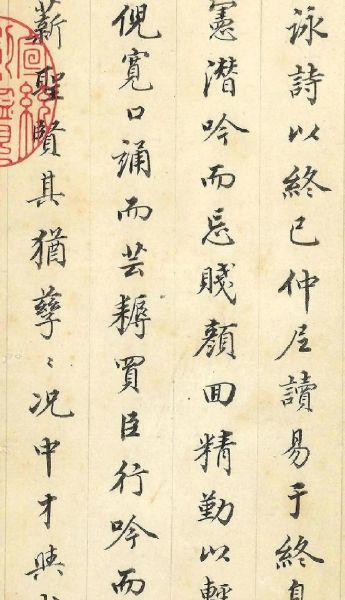 詠詩以終已仲尼讀易于終身
憲潛吟而忘賤顏回精勤以輕
倪寬口誦而芸耨買臣行吟而
薪聖賢其猶孳〻況中才與